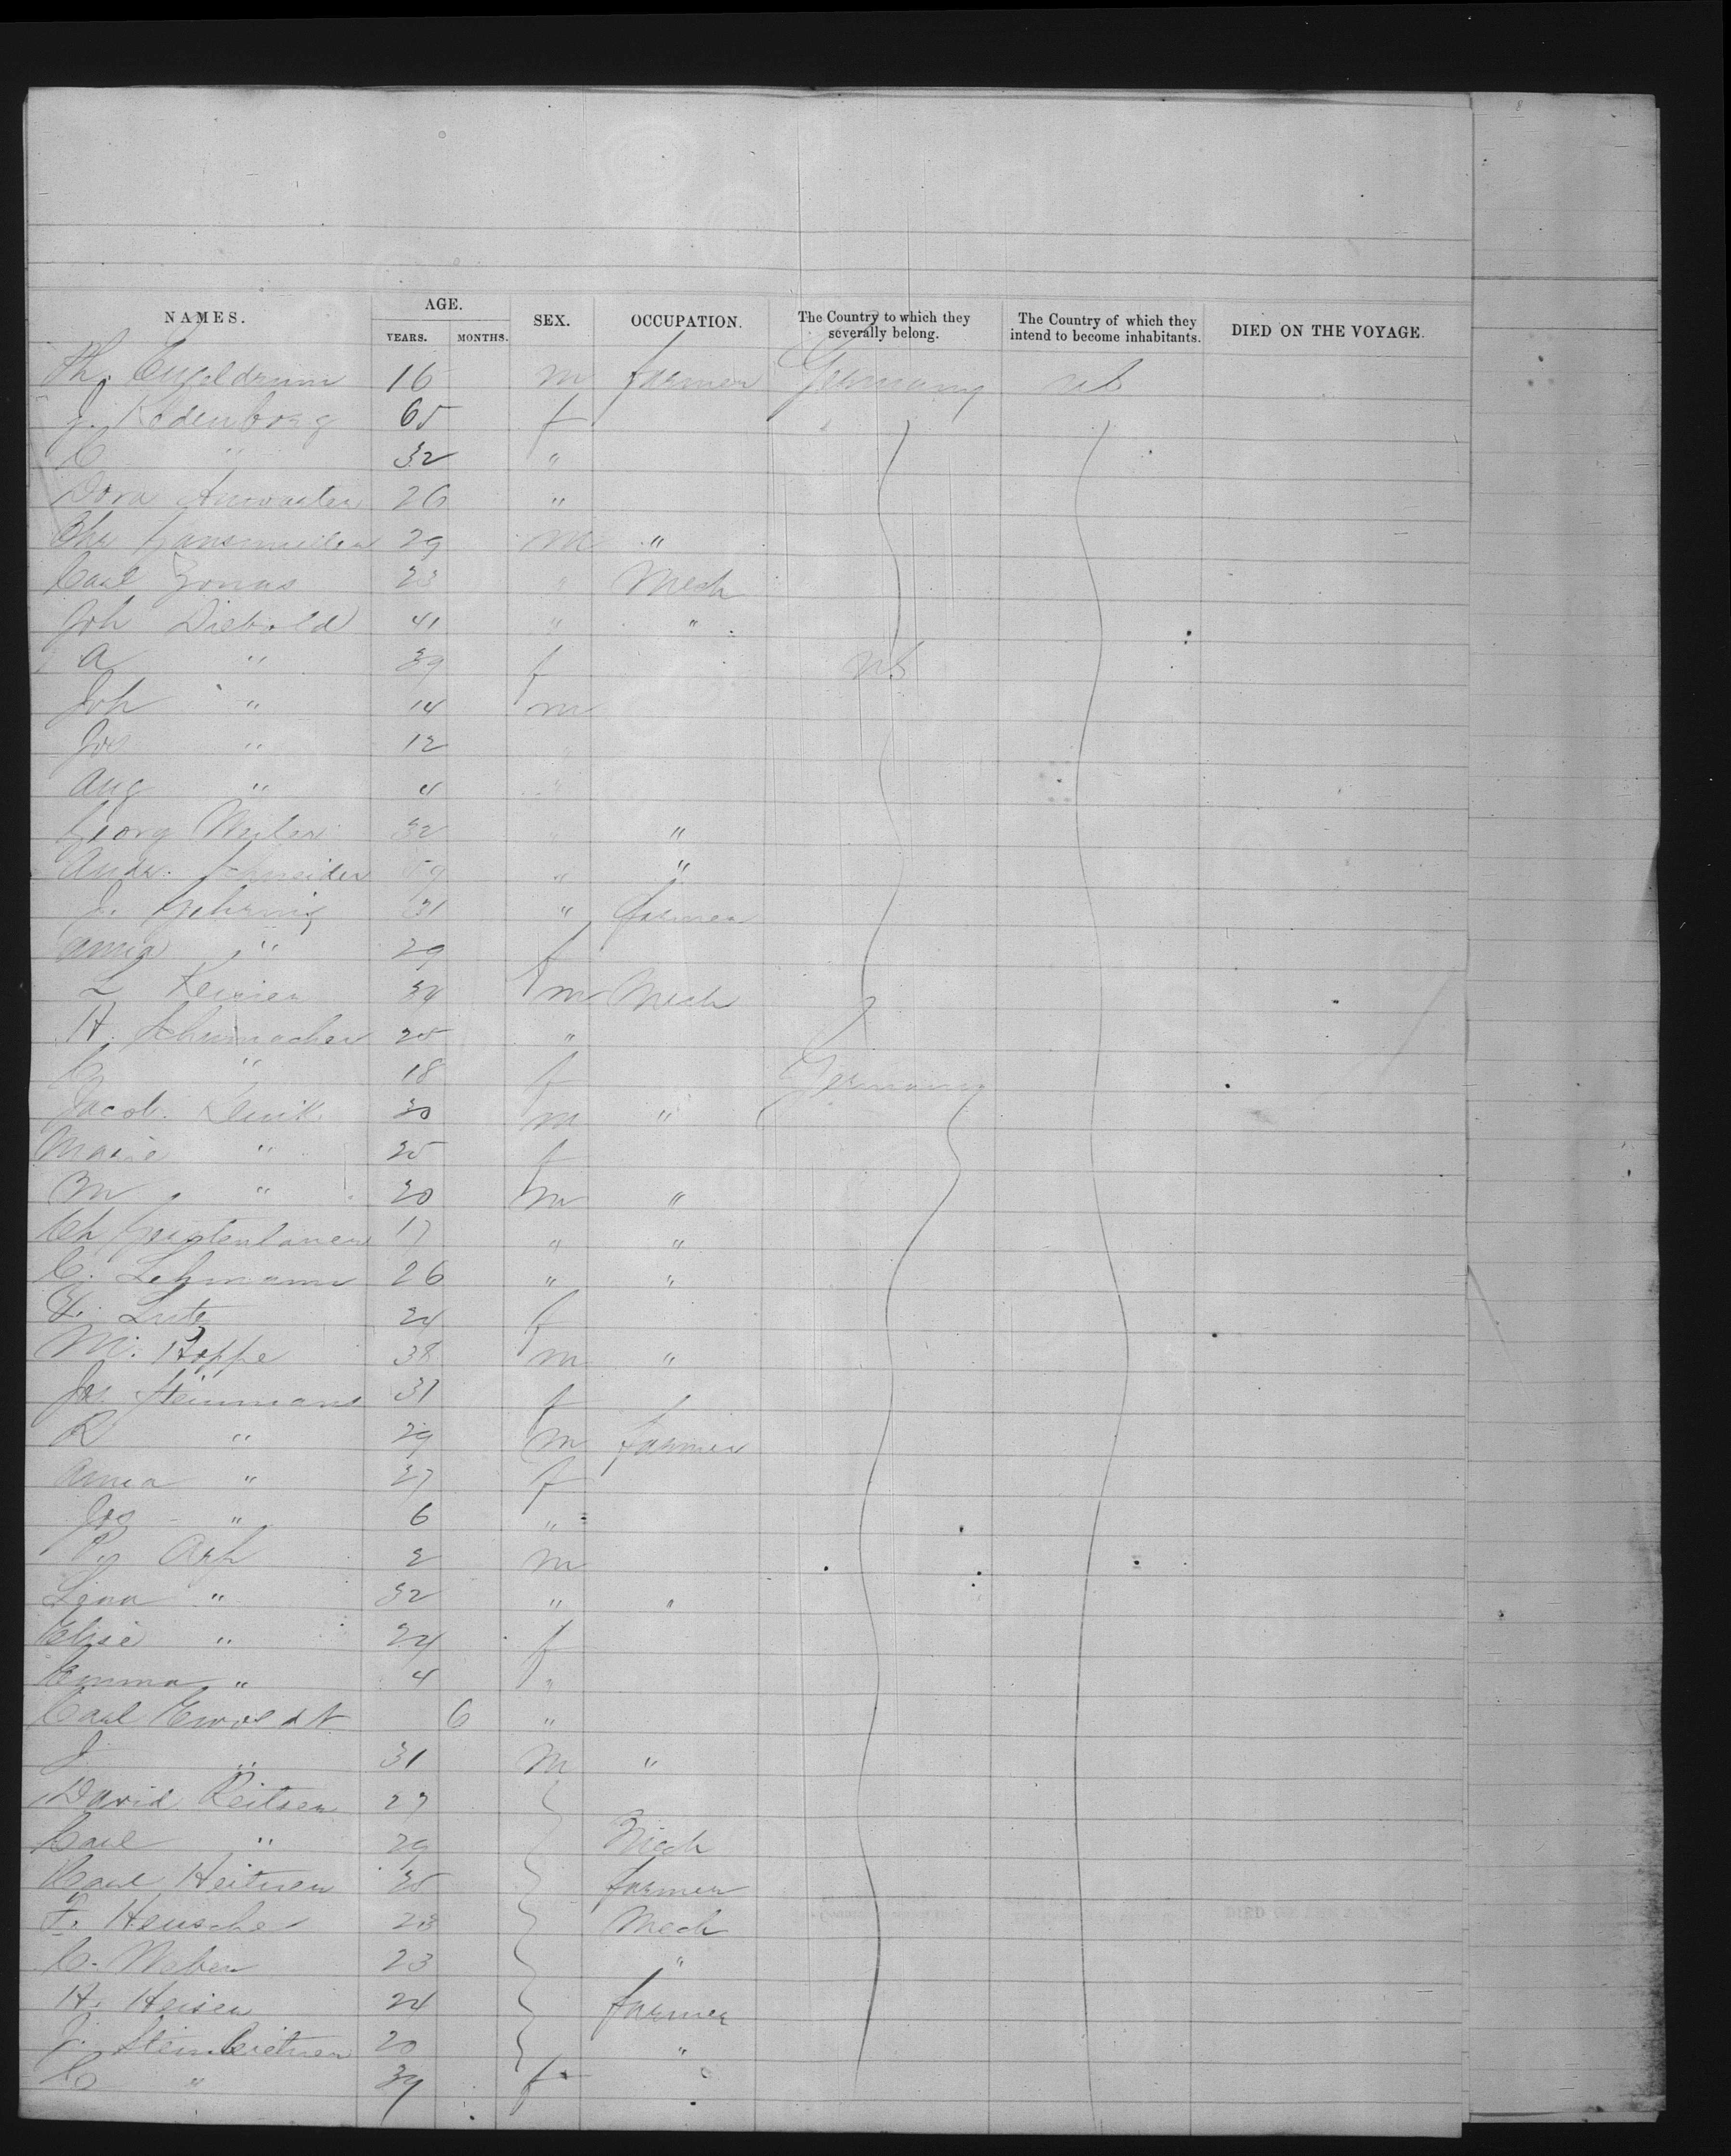 NAMES. AGE. SEX. OCCUPATION. The Country to which they severally belong. The Country of which they intend to become inhabitants. DIED ON THE VOYAGE.
YEARS. MONTHS.
Ph. Engeldrum 16 m farmer Germany US
J. Rodenborg 65 f
C " 32 "
Dora 26 "
Chr 29 m "
Carl Jonas 23 " Mech
Joh Diebold 41 " "
A " 39 f US
Joh " 14 m
Jos " 12 "
Aug " 4 "
Georg 32 " "
Andr. Schneider 59 " "
J. Gehrnig 31 " farmer
Anna " 29 f
L 34 m Mech
H. Schumacher 25 "
C " 18 f Germany
Jacob 30 m "
Marie " 25 f
M " 20 m "
Ch 17 " "
C. Lehmann 26 " "
F. Lutz 24 f
M. Hoppe 38 m "
Jos. Steinmann 31 f
R " 29 m farmer
Anna " 27 f
Jos " 6 "
P. Arp 2 m
Lena " 32 " "
Elise " 24 f
Emma " 4 "
Carl Ewoldt 6 "
J " 31 m "
David Reitsen 27
Carl " 29 Mech
Carl Heitnen 35 farmer
F. Hensche 23 Mech
C. Weber 23 "
H. Heisen 24 farmer
J. 20 "
C " 39 f "